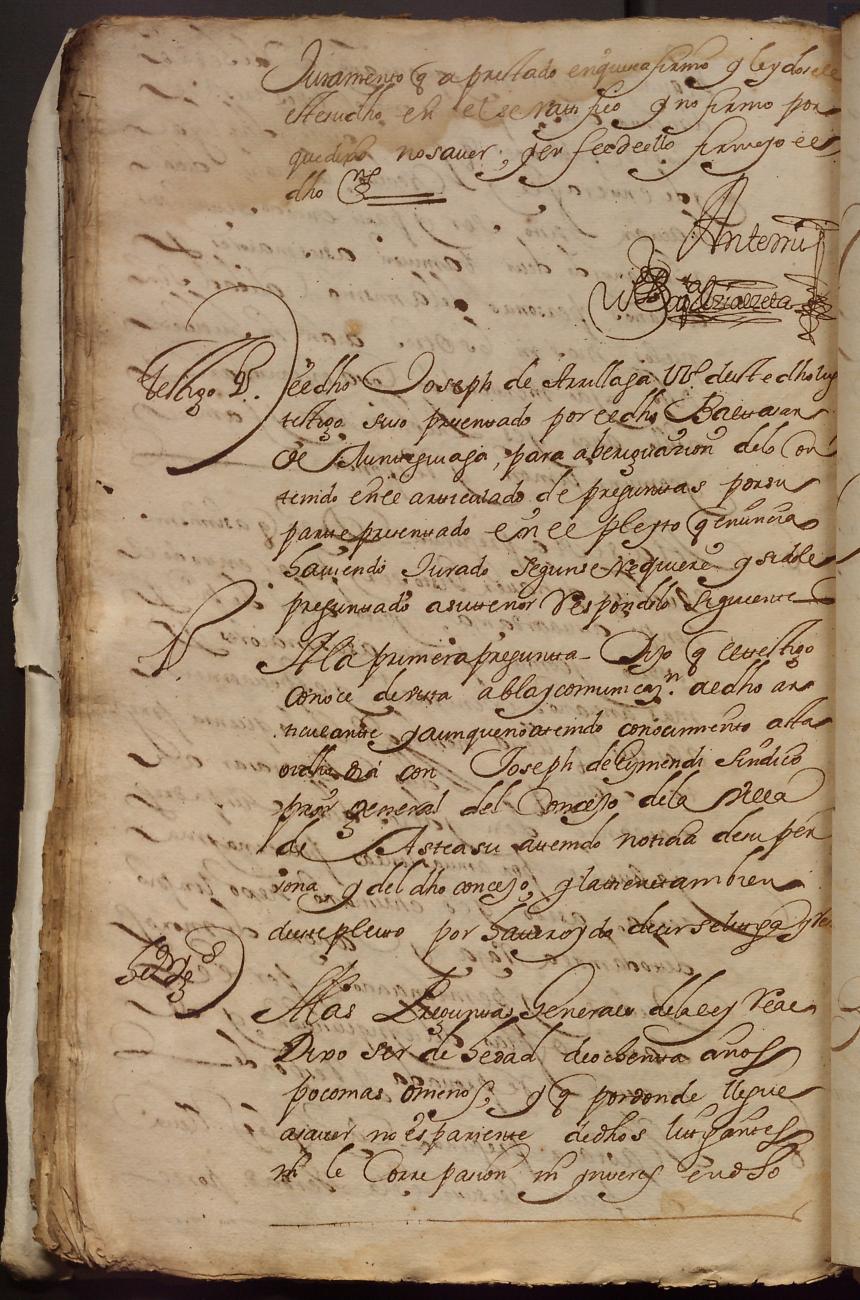 Juramento q̃ a prestado en que se afirmo y leydosele
este su dho en el se ratifico y no firmo por
que dixo no saver, y en fee de ello firme yo el
dho
Antemi
Testigo El dho Joseph de Arrillaga Vº deste dho lug
testigo suso presentado por el dho Baltasar
de Aunteguiaga, para aberiguazion delo con
tenido en el articulado de preguntas por su
parte presentado en el pleyto q̃ enuncia
haviendo Jurado segun se requiere y sidole
preguntado a su tenor Respondio lo siguiente
1 A la primera pregunta Dijo q̃ el testigo
conoce de vista abla y comunicazn. al dho ar
ticulante y aunque no a tenido conocimiento asta
oy dho dia con Joseph de Lymendi sindico
pror general del Concejo dela Villa
de Asteasu a tenido noticia de su per
sona y del dho concejo, y la tiene tambien
deste pleito por haver oydo decir se litiga y Re
A las Preguntas Generales dela ley Real
Dixo ser de hedad de ochenta años
poco mas o menos, y q̃ por donde llegue
a saver no es pariente de dhos litigantes
ni le Corre pasion ni ynteres en dho